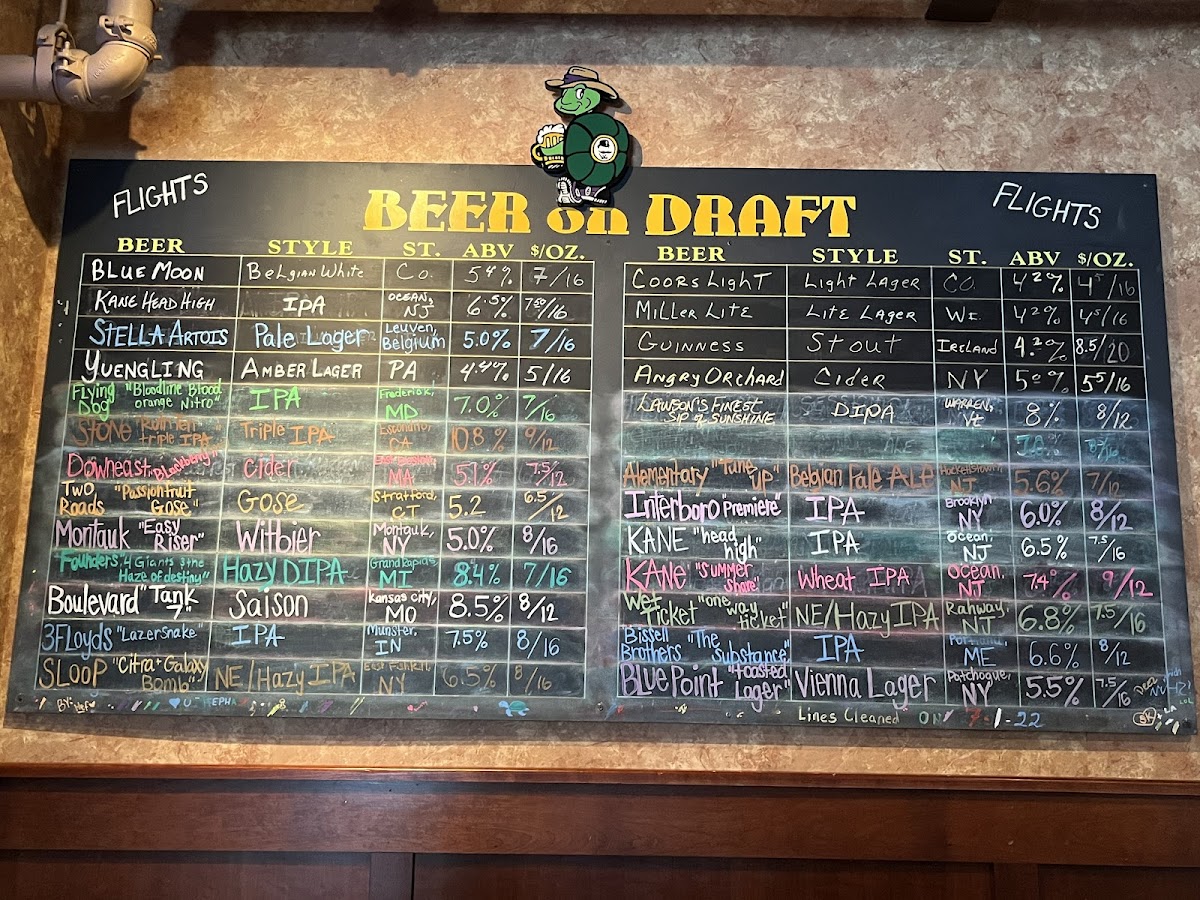 FLIGHTS
BEER on DRAFT
FLIGHTS
BEER STYLE ST. ABV $/OZ.
BLUE MOON Belgian White Co. 5.4% 7/16
KANE HEAD HIGH IPA OCEAN, NJ 6.5% 7.50/16
STELLA ARTOIS Pale Lager Leuven, Belgium 5.0% 7/16
YUENGLING AMBER LAGER PA 4.4% 5/16
Flying Dog "Bloodline Blood orange Nitro" IPA Frederick, MD 7.0% 7/16
STONE triple IPA" Triple IPA Escondido, CA 10.8% 9/12
Downeast "Blackberry" Cider MA 5.1% 7.5/12
Two Roads "Passionfruit Gose" Gose Stratford, CT 5.2 6.5/12
Montauk "Easy Riser" Witbier Montauk, NY 5.0% 8/16
Founders "4 Giants & the Haze of destiny" Hazy DIPA Grand Rapids, MI 8.4% 7/16
Boulevard "Tank 7" Saison Kansas City, MO 8.5% 8/12
3Floyds "Lazersnake" IPA Munster, IN 7.5% 8/16
SLOOP "Citra + Galaxy Bomb" NE/Hazy IPA NY 6.5% 8/16
BEER STYLE ST. ABV $/OZ.
COORS LIGHT Light Lager CO. 4.2% 4.5/16
MILLER LITE LITE LAGER WI. 4.2% 4.5/16
GUINNESS STOUT IRELAND 4.2% 8.5/20
ANGRY ORCHARD CIDER NY 5.0% 5.5/16
LAWSON'S FINEST SIP of SUNSHINE DIPA WARREN, Vt 8% 8/12
Alementary "Tune up" Belgian Pale Ale Hackettstown, NJ 5.6% 7/12
Interboro "Premiere" IPA Brooklyn, NY 6.0% 8/12
KANE "head high" IPA Ocean, NJ 6.5% 7.5/16
KANE "Summer Share" Wheat IPA Ocean, NJ 7.4% 9/12
Wet Ticket "one way ticket" NE/Hazy IPA Rahway, NJ 6.8% 7.5/16
Bissell Brothers "The Substance" IPA Portland, ME 6.6% 8/12
Blue Point "toasted Lager" Vienna Lager Patchogue, NY 5.5% 7.5/16
Lines Cleaned ON 7-1-22